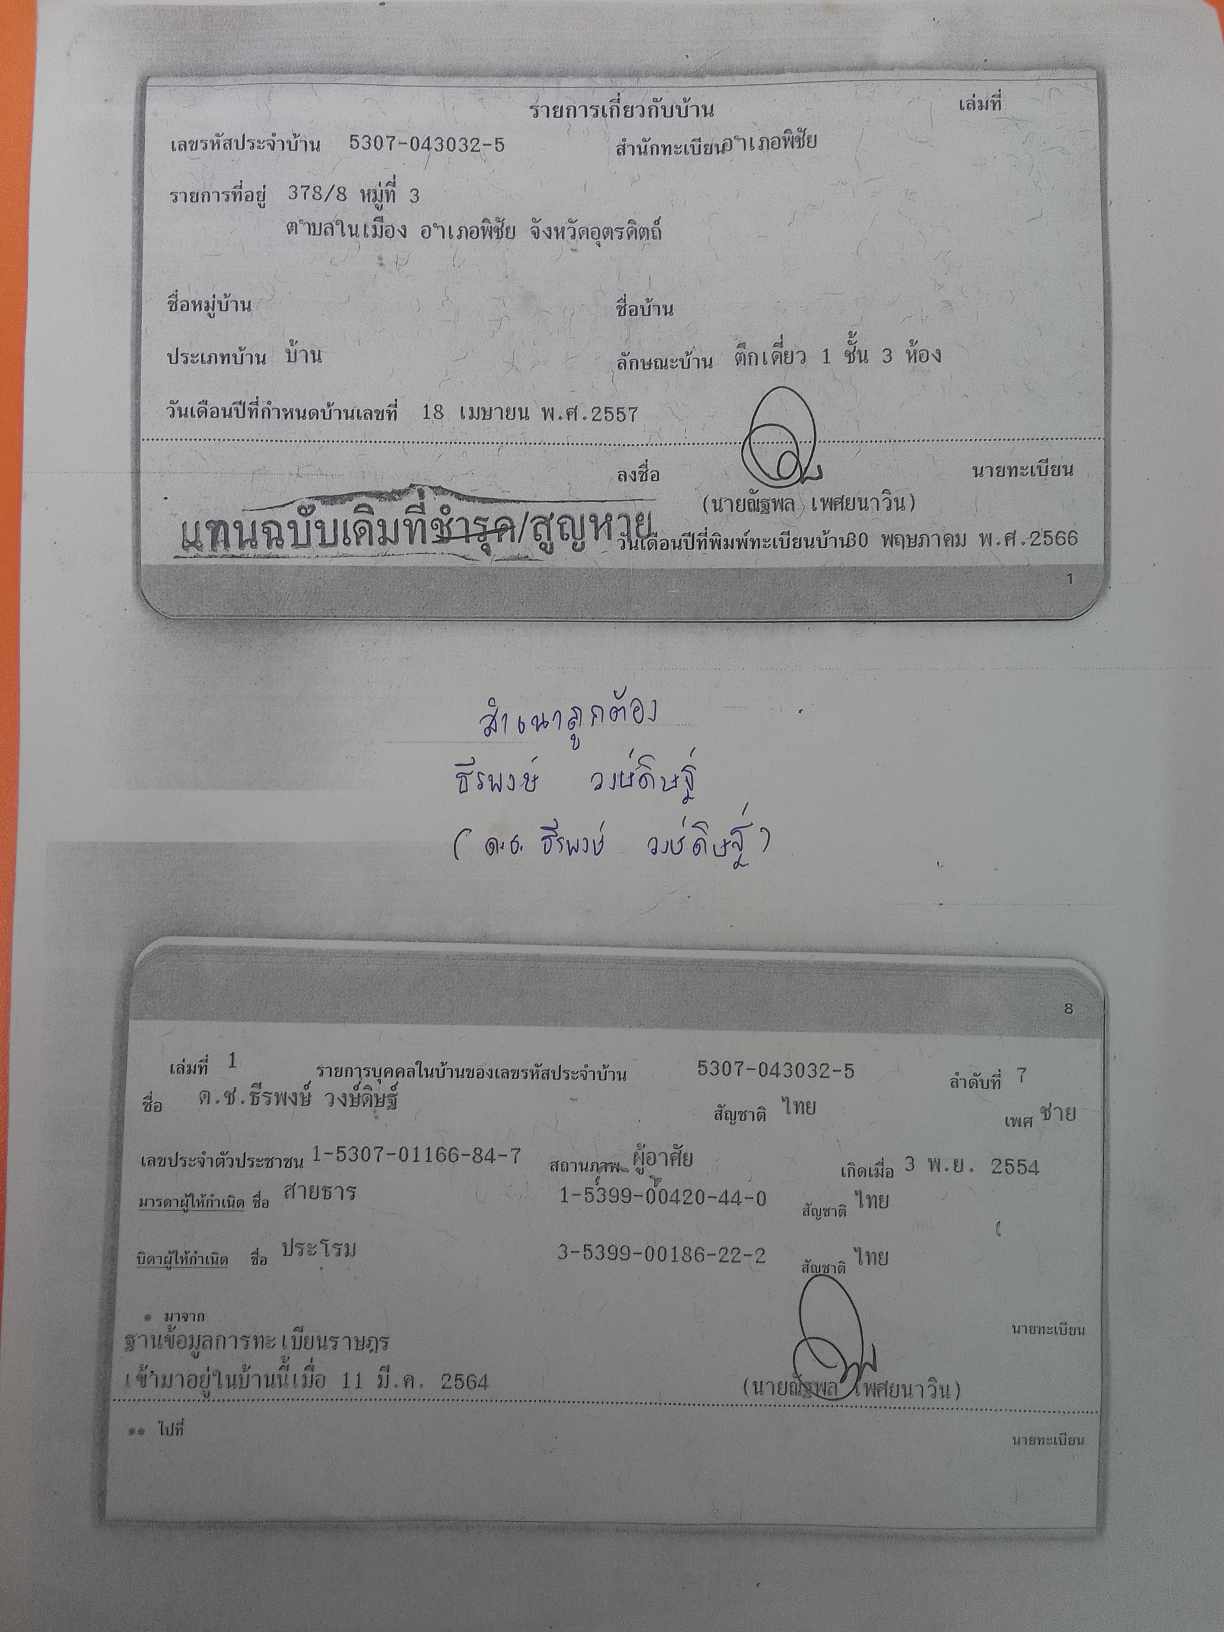 รายการเกี่ยวกับบ้าน เล่มที่
เลขรหัสประจำบ้าน 5307-043032-5 สำนักทะเบียน อำเภอพิชัย
รายการที่อยู่ 378/8 หมู่ที่ 3
ตำบลในเมือง อำเภอพิชัย จังหวัดอุตรดิตถ์
ชื่อหมู่บ้าน ชื่อบ้าน
ประเภทบ้าน บ้าน ลักษณะบ้าน ตึกเดี่ยว 1 ชั้น 3 ห้อง
วันเดือนปีที่กำหนดบ้านเลขที่ 18 เมษายน พ.ศ.2557
ลงชื่อ นายทะเบียน
(นายณัฐพล เพศยนาวิน)
แทนฉบับเดิมที่ชำรุด/สูญหาย
วันเดือนปีที่พิมพ์ทะเบียนบ้าน 30 พฤษภาคม พ.ศ.2566
1
สำเนาถูกต้อง
ธีรพงษ์ วงษ์ดิษฐ์
(ด.ช. ธีรพงษ์ วงษ์ดิษฐ์)
8
เล่มที่ 1 รายการบุคคลในบ้านของเลขรหัสประจำบ้าน 5307-043032-5 ลำดับที่ 7
ชื่อ ด.ช.ธีรพงษ์ วงษ์ดิษฐ์ สัญชาติ ไทย เพศ ชาย
เลขประจำตัวประชาชน 1-5307-01166-84-7 สถานภาพ ผู้อาศัย เกิดเมื่อ 3 พ.ย. 2554
มารดาผู้ให้กำเนิด ชื่อ สายธาร 1-5399-00420-44-0 สัญชาติ ไทย
บิดาผู้ให้กำเนิด ชื่อ ประโรม 3-5399-00186-22-2 สัญชาติ ไทย
* มาจาก นายทะเบียน
ฐานข้อมูลการทะเบียนราษฎร
เข้ามาอยู่ในบ้านนี้เมื่อ 11 มี.ค. 2564 (นายณัฐพล เพศยนาวิน)
** ไปที่ นายทะเบียน